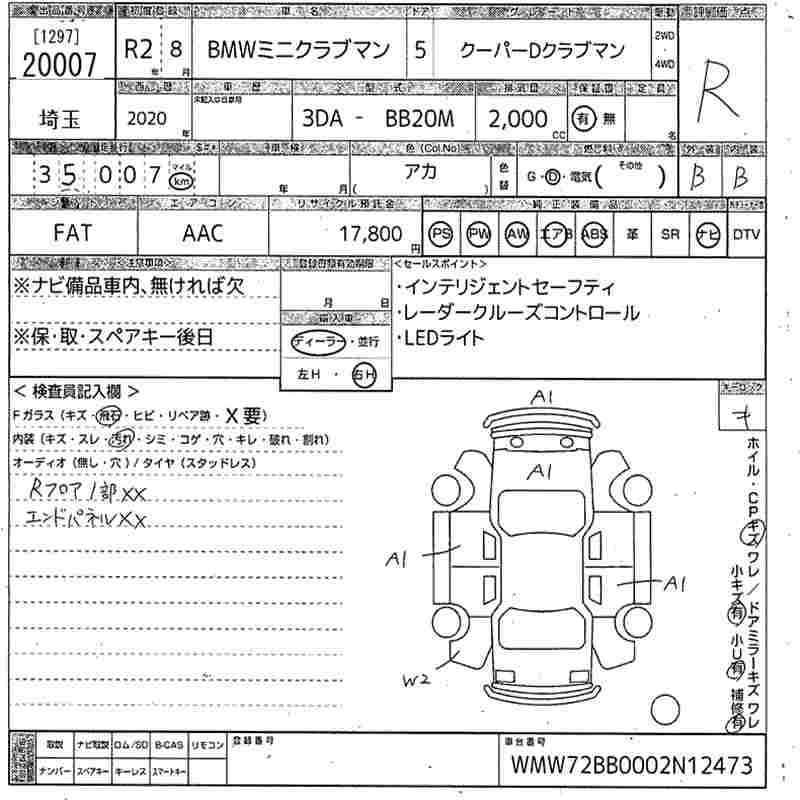 出品番号 初度登録 車名 ドア グレード 駆動 評価点
[1297]
20007
R2 年 8 月 BMWミニクラブマン 5 クーパーDクラブマン 2WD ・ 4WD R
埼玉
西暦 車歴 型式 排気量 保証書 定員
2020 年 未記入は自家用 3DA - BB20M 2,000 CC 有 無 名
走行 車検 色(Col.No) 燃料 外装 内装
35,007 マイル km 年 月 アカ ( ) 色替 G・D・電気( その他 ) B B
エアコン リサイクル預託金 純正装備品
FAT AAC 17,800 円 PS PW AW エアB ABS 革 SR ナビ DTV
<注意事項> 登録書類有効期限 <セールスポイント>
※ナビ備品車内、無ければ欠
月 日
※保・取・スペアキー後日
輸入車
ディーラー・並行
左H ・ 右H
・インテリジェントセーフティ
・レーダークルーズコントロール
・LEDライト
< 検査員記入欄 >
Fガラス(キズ・飛石・ヒビ・リペア跡・X要)
内装(キズ・スレ・汚れ・シミ・コゲ・穴・キレ・破れ・割れ)
オーディオ(無し・穴)/タイヤ(スタッドレス)
Rフロア1部XX
エンドパネルXX
A1
A1
A1
A1
W2
キーロック
ホイル・CPキズワレ/ドアミラーキズワレ
小キズ有 小U有 補修有
取説 ナビ取説 ロム/SD B-CAS リモコン
ナンバー スペアキー キーレス スマートキー
登録番号
車台番号
WMW72BB0002N12473